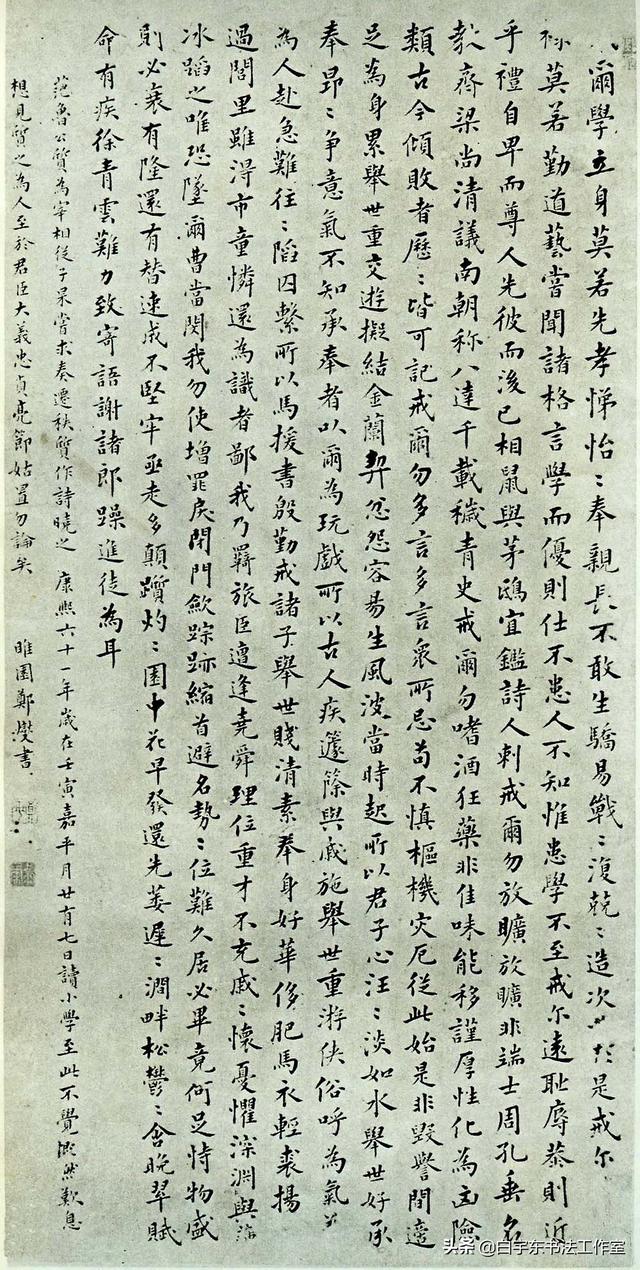 爾學立身莫若先孝悌怡〻奉親長不敢生驕易戰〻復兢〻造次於是戒尔
禄莫若勤道藝嘗聞諸格言學而優則仕不患人不知惟患學不至戒尔遠耻辱恭則近
乎禮自卑而尊人先彼而後已相鼠與茅鴟宜鑑詩人刺戒爾勿放曠放曠非端士周孔垂名
教齊梁尚清議南朝称八達千載穢青史戒爾勿嗜酒狂藥非佳味能移謹厚性化為凶險
類古今傾敗者歷〻皆可記戒爾勿多言多言衆所忌苟不慎樞機灾厄從此始是非毀譽間適
足為身累舉世重交遊擬結金蘭契忿怨容易生風波當時起所以君子心汪〻淡如水舉世好承
奉昂〻争意氣不知承奉者以爾為玩戲所以古人疾籧篨與戚施舉世重游俠俗呼為氣
為人赴急難往〻陷囚繫所以馬援書殷勤戒諸子舉世賤清素奉身好華侈肥馬衣輕裘揚
過閭里雖得市童憐還為識者鄙我乃羇旅臣遭逢堯舜理位重才不充戚〻懷憂懼深淵與薄
冰蹈之唯恐墜爾曹當閔我勿使增罪戾閉門歛踪跡縮首避名勢〻位難久居必畢竟何足恃物盛
則必衰有隆還有替速成不堅牢亟走多顛躓灼〻園中花早發還先萎遲〻澗畔松鬱〻含晚翠賦
命有疾徐青雲難力致寄語謝諸郎躁進徒為耳
范魯公質為宰相從子杲嘗求奏遷秩質作詩曉之 康熙六十一年歲在壬寅嘉平月廿有七日讀小學至此不覺慨然歎息
想見質之為人至於君臣大義忠貞亮節姑置勿論矣 睢園鄭燮書
头条 @白宇东书法工作室